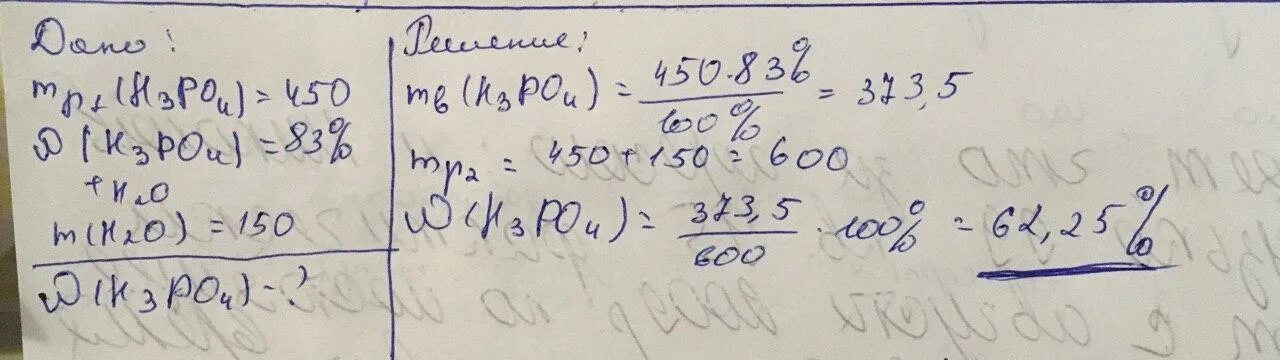 Дано:
mр₁(H₃PO₄) = 450
ω(H₃PO₄) = 83%
+ H₂O
m(H₂O) = 150
ω(H₃PO₄) - ?
Решение:
mв(H₃PO₄) = 450 · 83% / 100% = 373,5
mр₂ = 450 + 150 = 600
ω(H₃PO₄) = 373,5 / 600 · 100% = 62,25%